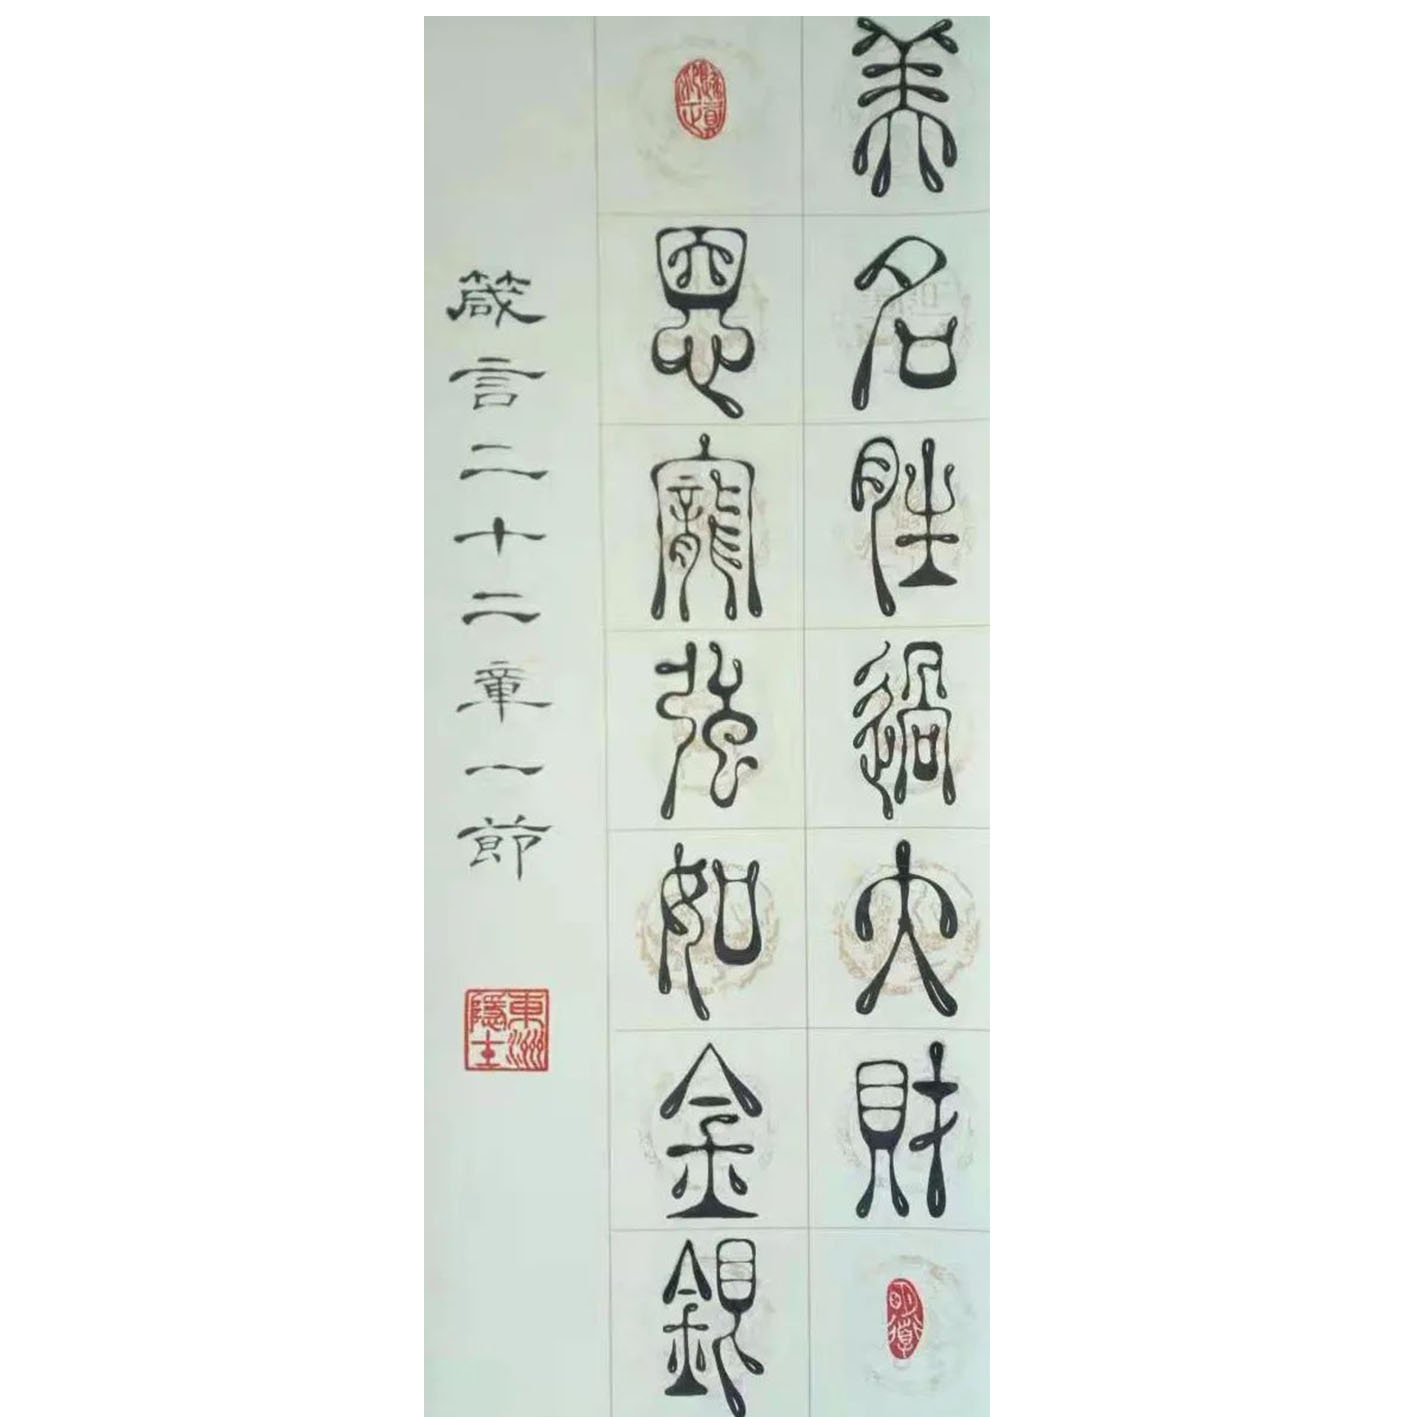 美名胜過大財
恩寵強如金銀
箴言二十二章一節
東洲隱士